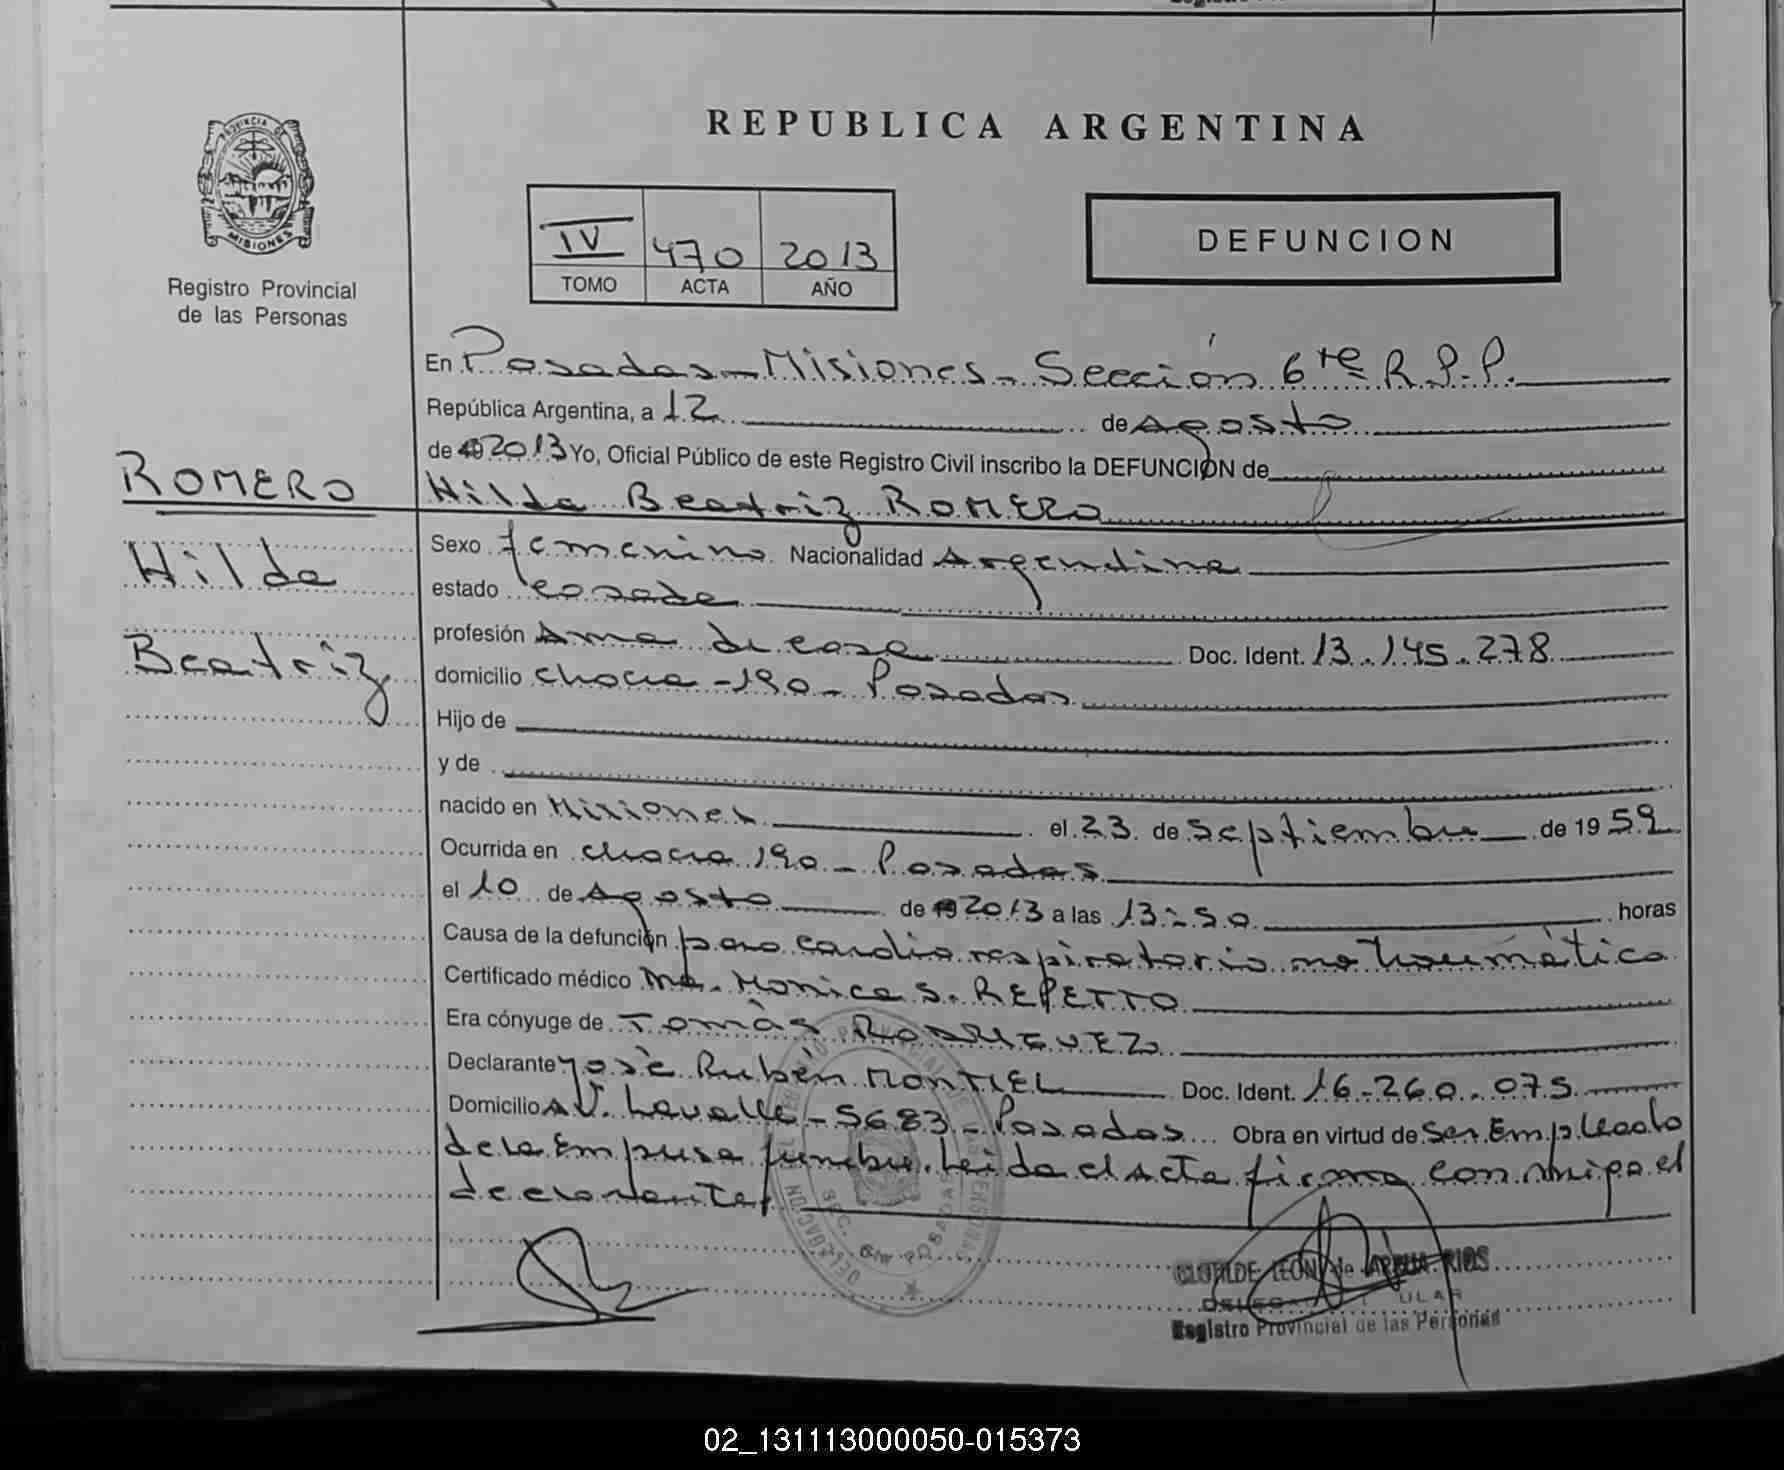 REPUBLICA ARGENTINA
PROVINCIA DE
MISIONES
Registro Provincial
de las Personas
IV 470 2013
TOMO ACTA AÑO
DEFUNCION
En Posadas - Misiones - Sección 6ta R.P.P.
República Argentina, a 12 de Agosto
de 2013 Yo, Oficial Público de este Registro Civil inscribo la DEFUNCION de
Hilda Beatriz ROMERO
ROMERO
Hilda
Beatriz
Sexo femenino Nacionalidad Argentina
estado casada
profesión Ama de casa Doc. Ident. 13.145.278
domicilio - 190 - Posadas
Hijo de
y de
nacido en Misiones el 23 de Septiembre de 1959
Ocurrida en 190 - Posadas
el 10 de Agosto de 2013 a las 13:50 horas
Causa de la defunción paro cardio respiratorio no traumático
Certificado médico Monica S. REPETTO
Era cónyuge de Tomás RODRIGUEZ
Declarante José Rubén MONTIEL Doc. Ident. 16.260.075
Domicilio AV. Lavalle - 5683 - Posadas Obra en virtud de Ser Empleado
de la Empresa fúnebre. Leida el Acta firma conmigo el
declarante
CLOTILDE LEON de RIOS
Registro Provincial de las Personas
02_131113000050-015373